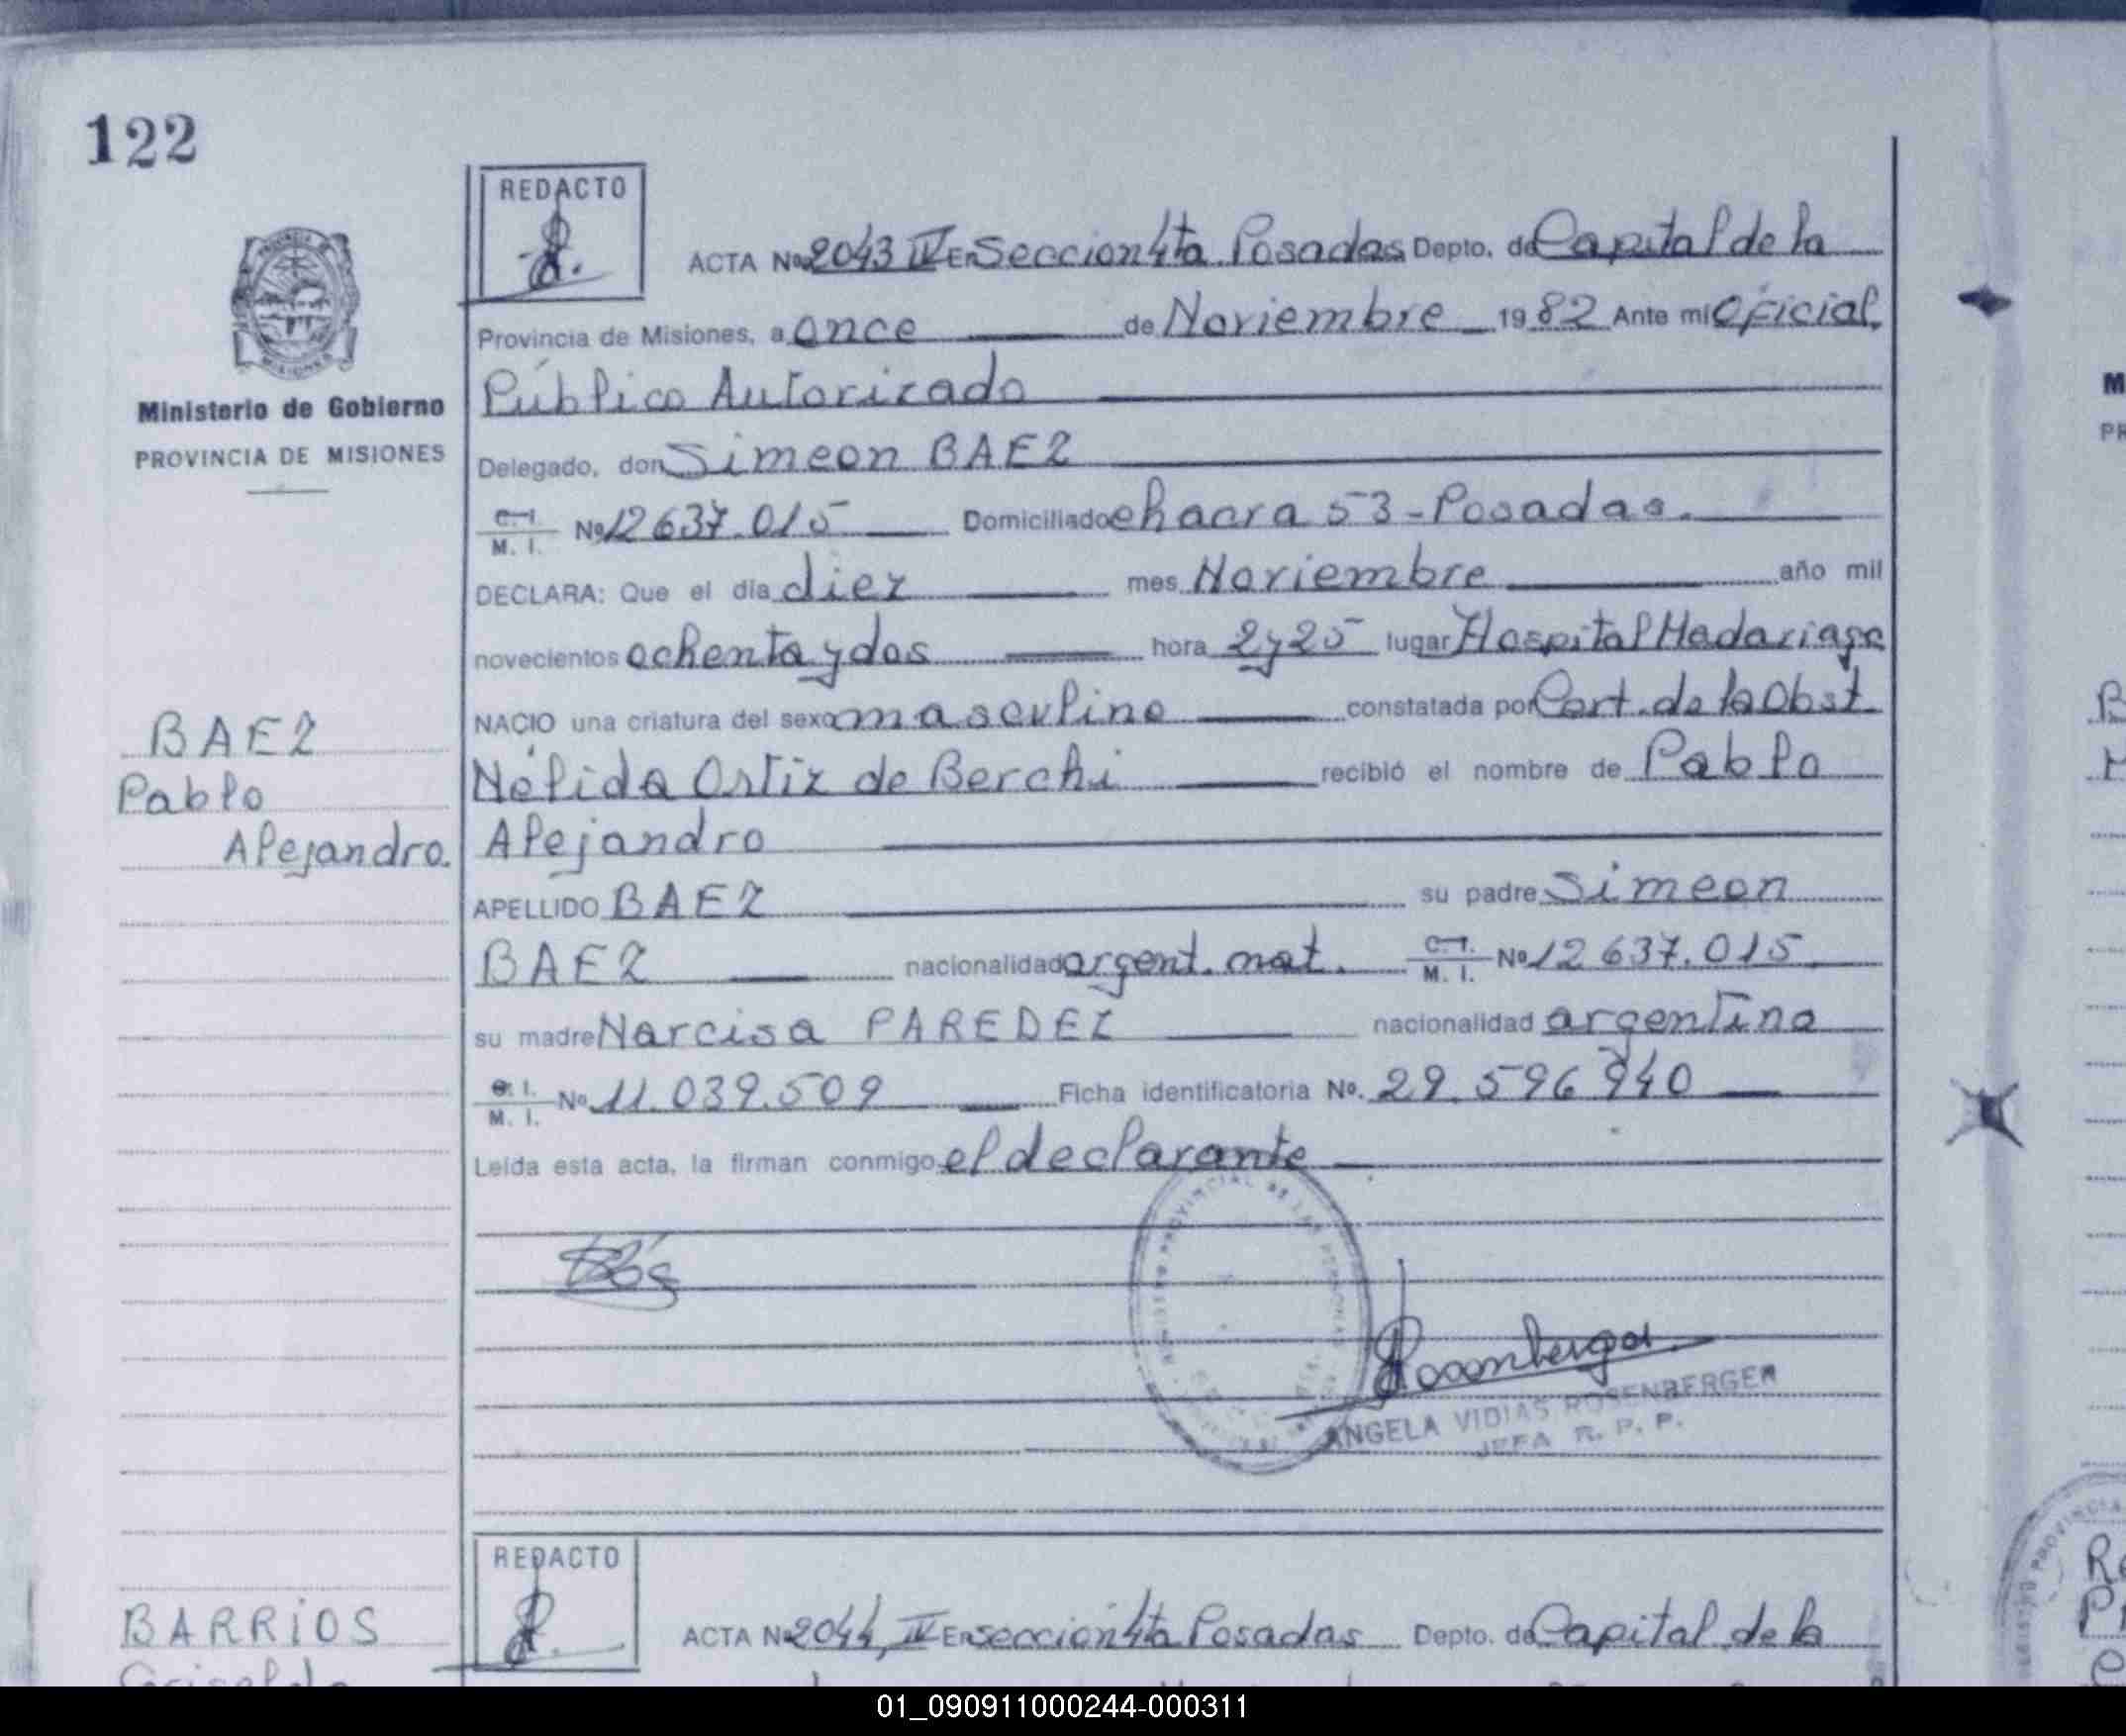 122
REDACTO
ACTA No 2043 IV En Sección 4ta Posadas Depto. de Capital de la
Provincia de Misiones, a once de Noviembre 1982 Ante mi Oficial
Público Autorizado
Ministerio de Gobierno
PROVINCIA DE MISIONES
Delegado, don Simeon BAEZ
C. I. M. I. No 12 637.015 Domiciliado chacra 53 - Posadas.
DECLARA: Que el día diez mes Noviembre año mil
novecientos ochenta y dos hora 2 y 25 lugar Hospital Madariaga
NACIO una criatura del sexo masculino constatada por Cert. de la Obst.
Nélida Ortiz de Berchi recibió el nombre de Pablo
Alejandro
BAEZ
Pablo
Alejandro.
APELLIDO BAEZ su padre Simeon
BAEZ nacionalidad argent. nat. C. I. M. I. No 12 637.015
su madre Narcisa PAREDEZ nacionalidad argentina
C. I. M. I. No 11.039.509 Ficha identificatoria No. 29.596 940
Leída esta acta, la firman conmigo el declarante
ANGELA VIDIAS ROSENBERGER
JEFA R. P. P.
REDACTO
BARRIOS
ACTA No 2044, IV En sección 4ta Posadas Depto. de Capital de la
01_090911000244-000311